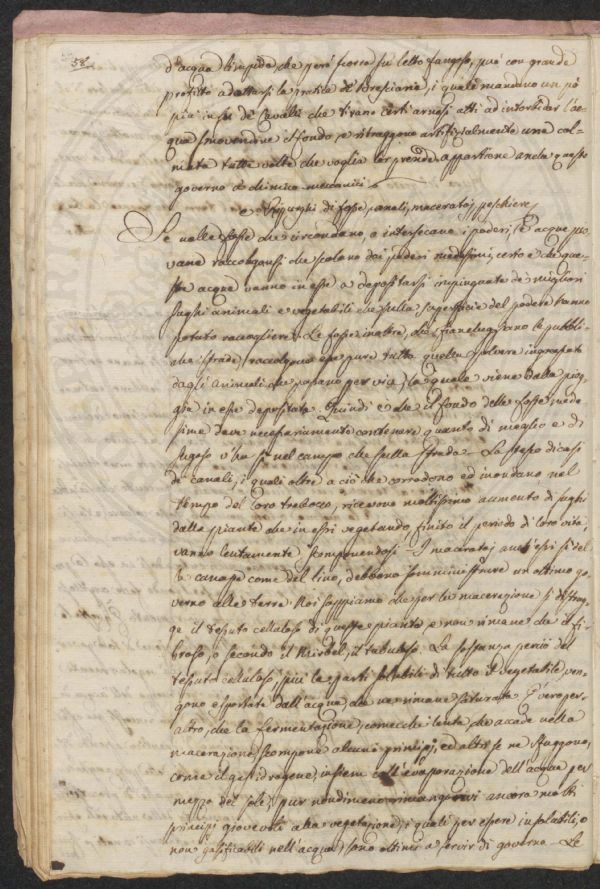 58.
d'acqua limpida, che però scorra su letto fangoso, può con grande
profitto adottarsi la pratica de' Bresciani, i quali mandano un pò
più in su de' Cavalli che tirano certi arnesi atti ad intorbidar l'ac-
qua smovendone il fondo, e ritraggono artifizialmente una col-
mata tutte volte che voglia lor prende. appartiene anche questo
governo a' chimico-meccanici
e. Spurghi di fosse, canali, maceratoj, peschiere
Se nelle fosse che circondano, o intersecano i poderi, l'acque pio-
vane raccolgonsi che scolano dai poderi medesimi, certo è che que-
ste acque vanno in esse a depositarsi impinguate de' migliori
sughi animali e vegetabili che sulla superficie del podere hanno
potuto raccogliere. Le fosse inoltre, che fiancheggiano le pubbli-
che strade, raccolgono esse pure tutta quella polvere ingrassata
dagli animali che passano per via, la quale viene dalla piog-
gia in esse depositata. Quindi è che il fondo delle fosse mede-
sime deve necessariamente contenere quanto di meglio e di
sugoso v'ha sì nel campo che sulla strada. Lo stesso dicasi
de' canali, i quali oltre a ciò che corrodono ed inondano nel
tempo del loro trabocco, ricevono moltissimo aumento di sughi
dalle piante che in essi vegetando, finito il periodo di loro vita,
vanno lentamente scomponendosi. I maceratoj anch'essi sì del-
la canapa come del lino, debbono somministrare un ottimo go-
verno alle terre. Noi sappiamo che per la macerazione si distrug-
ge il tessuto celluloso di queste piante, e non rimane che il fi-
broso, o secondo il Mirbel, il tubuloso. La sostanza perciò del
tessuto celluloso, più le parti solubili di tutto il vegetabile ven-
gono esportate dall'acqua, che ne rimane saturata. È vero per-
altro, che la fermentazione, comecchè lenta, che accade nella
macerazione, scompone alcuni principj, ed altri se ne sfuggono,
come il gas idrogene, insiem coll'evaporazione dell'acqua per
mezzo del sole; pur nondimeno rimangonvi ancora molti
principj giovevoli alla vegetazione, i quali per essere insolubili, o
non gasificabili nell'acqua, sono ottimi a servir di governo. Le